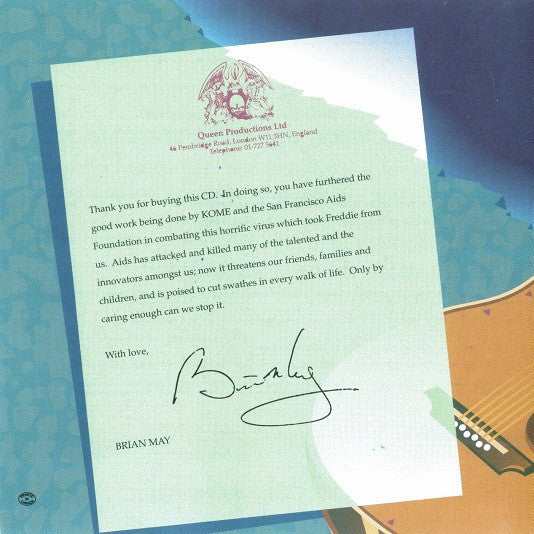 Queen Productions Ltd
46 Pembridge Road, London W11 3HN, England
Telephone: 01-727 5641
Thank you for buying this CD. In doing so, you have furthered the
good work being done by KOME and the San Francisco Aids
Foundation in combating this horrific virus which took Freddie from
us. Aids has attacked and killed many of the talented and the
innovators amongst us; now it threatens our friends, families and
children, and is poised to cut swathes in every walk of life. Only by
caring enough can we stop it.
With love,
Brian May
BRIAN MAY